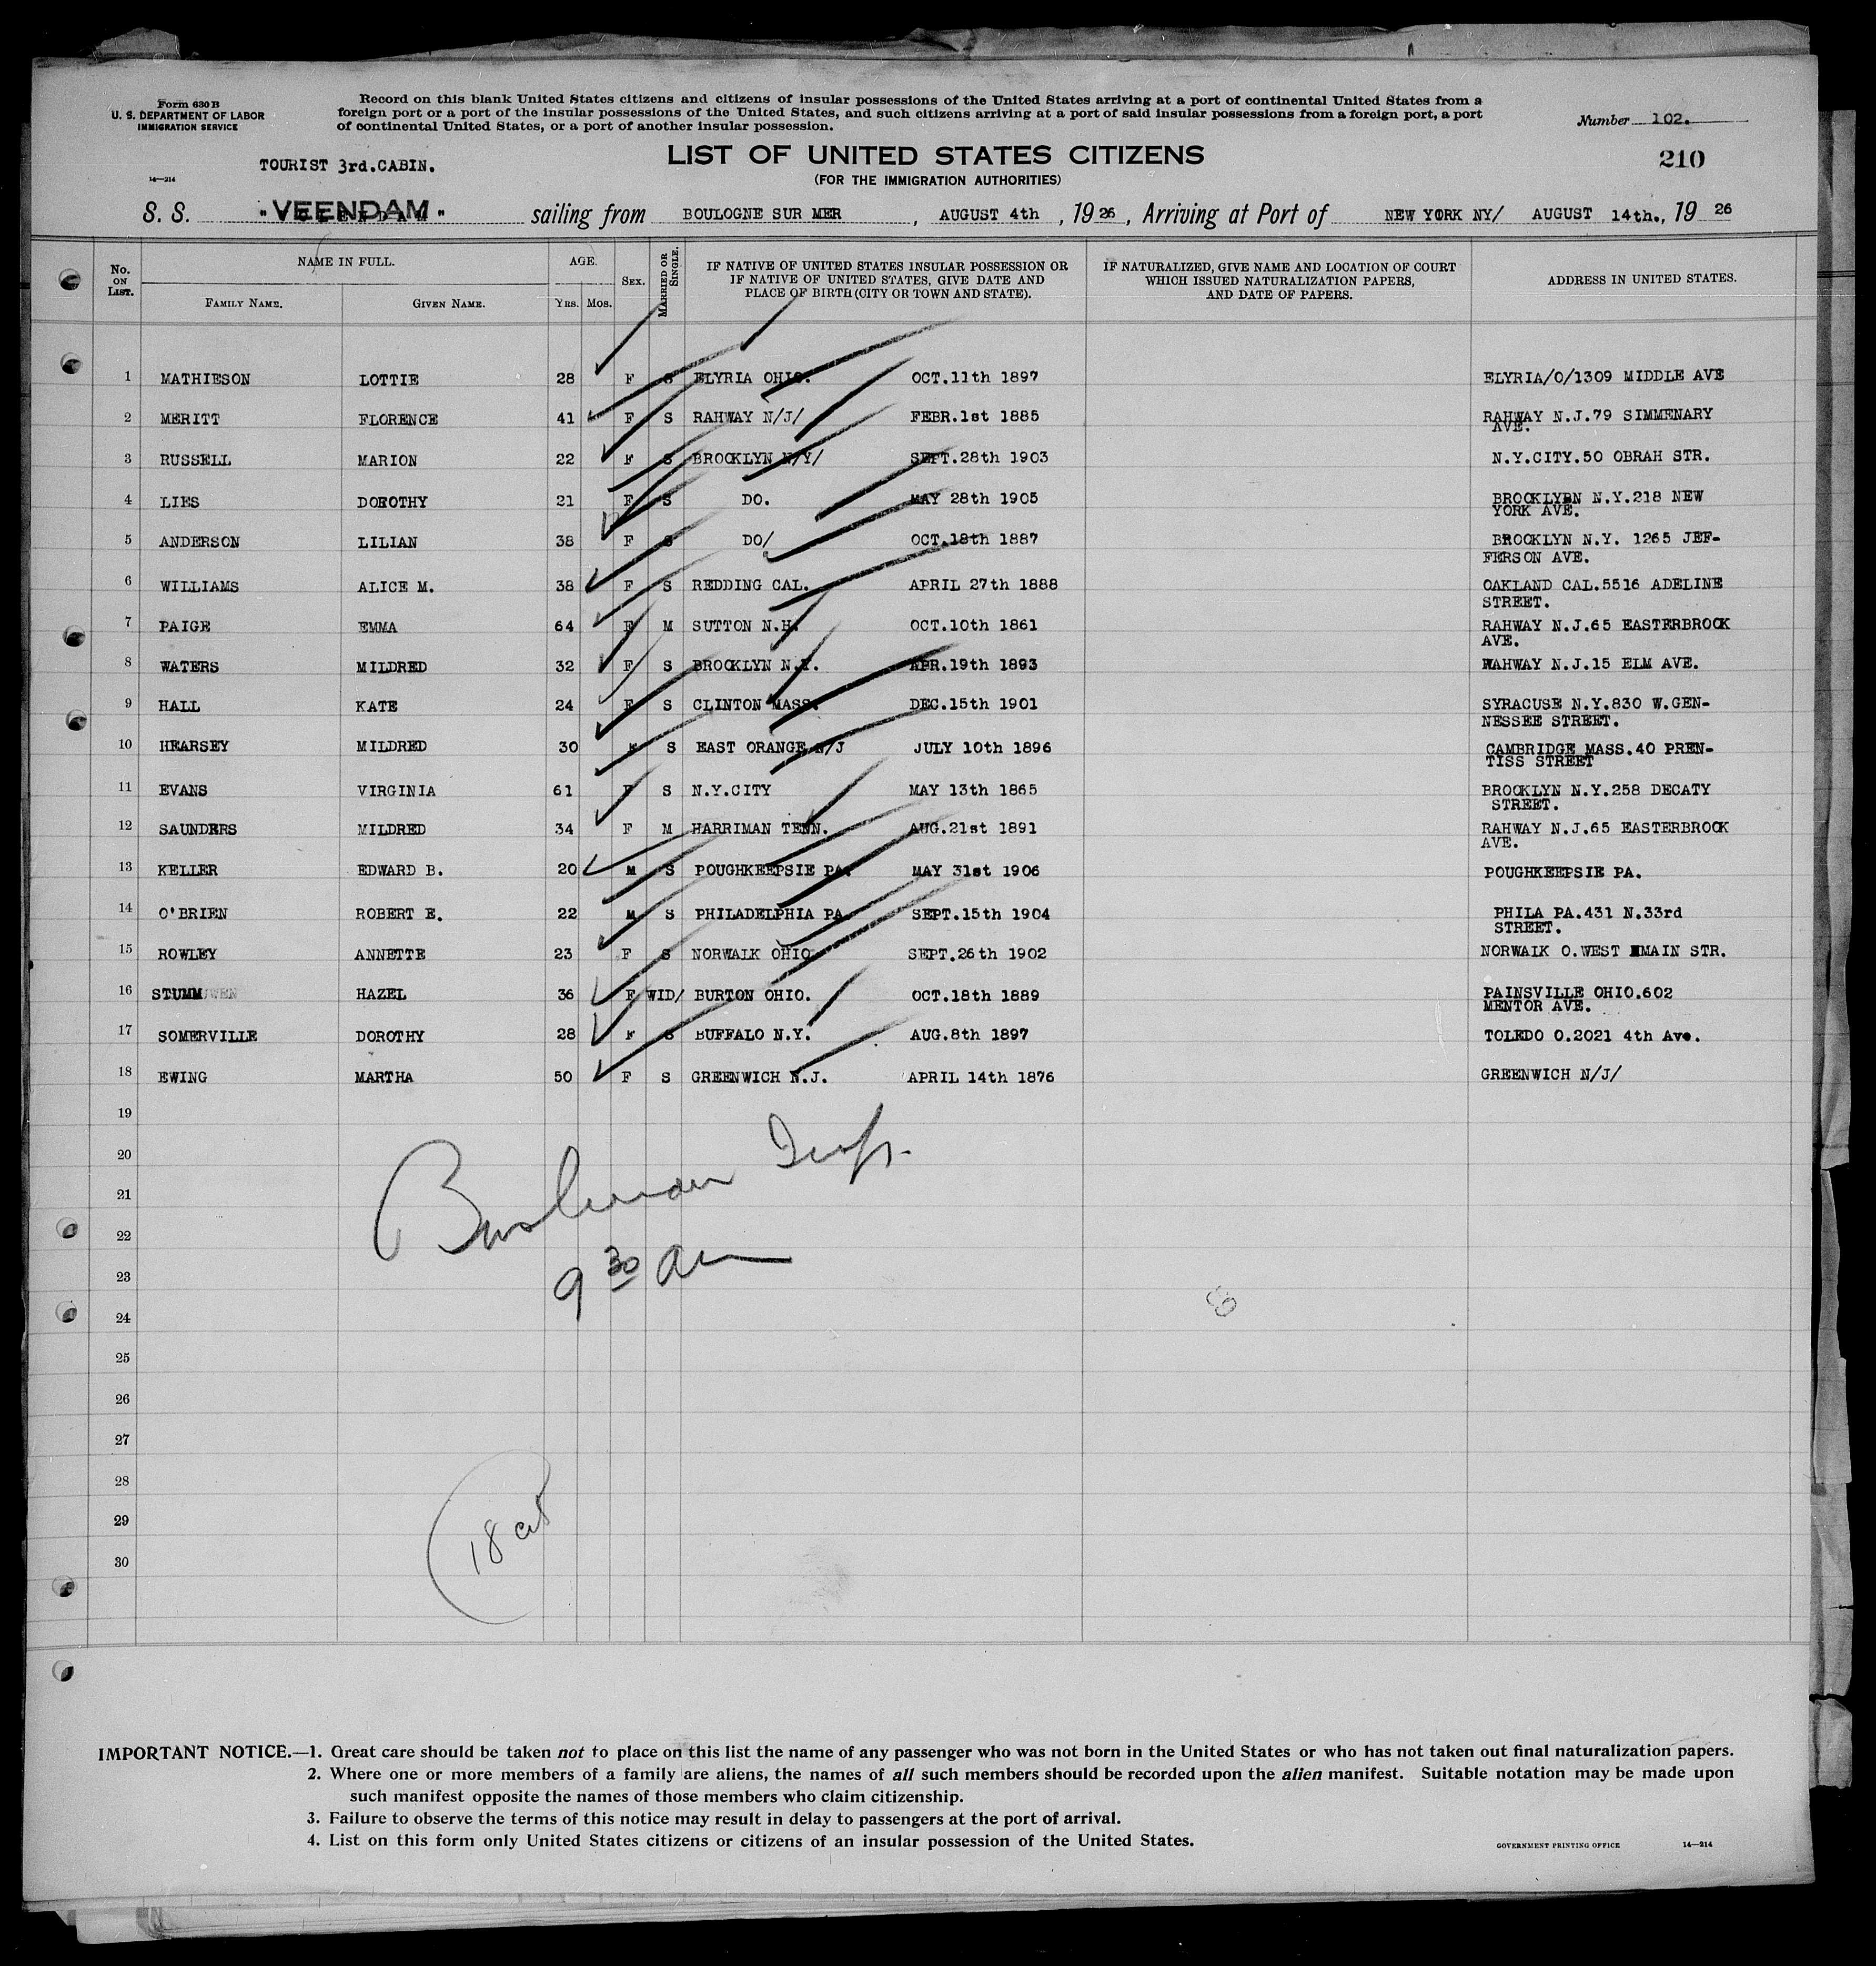 Form 630 B
U. S. DEPARTMENT OF LABOR
IMMIGRATION SERVICE
Record on this blank United States citizens and citizens of insular possessions of the United States arriving at a port of continental United States from a
foreign port or a port of the insular possessions of the United States, and such citizens arriving at a port of said insular possessions from a foreign port, a port
of continental United States, or a port of another insular possession.
Number 102.
TOURIST 3rd.CABIN.
LIST OF UNITED STATES CITIZENS
210
14—214
(FOR THE IMMIGRATION AUTHORITIES)
S. S. "VEENDAM" sailing from BOULOGNE SUR MER , AUGUST 4th , 19 26 , Arriving at Port of NEW YORK NY/ AUGUST 14th., 19 26
No. ON LIST. NAME IN FULL. AGE. SEX. MARRIED OR SINGLE. IF NATIVE OF UNITED STATES INSULAR POSSESSION OR IF NATIVE OF UNITED STATES, GIVE DATE AND PLACE OF BIRTH (CITY OR TOWN AND STATE). IF NATURALIZED, GIVE NAME AND LOCATION OF COURT WHICH ISSUED NATURALIZATION PAPERS, AND DATE OF PAPERS. ADDRESS IN UNITED STATES.
FAMILY NAME. GIVEN NAME. YRS. MOS.
1 MATHIESON LOTTIE 28 F S ELYRIA OHIO. OCT.11th 1897 ELYRIA/O/1309 MIDDLE AVE
2 MERITT FLORENCE 41 F S RAHWAY N/J/ FEBR.1st 1885 RAHWAY N.J.79 SIMMENARY
AVE.
3 RUSSELL MARION 22 F S BROOKLYN N/Y/ SEPT.28th 1903 N.Y.CITY.50 OBRAH STR.
4 LIES DOROTHY 21 F S DO. MAY 28th 1905 BROOKLYN N.Y.218 NEW
YORK AVE.
5 ANDERSON LILIAN 38 F S DO/ OCT.18th 1887 BROOKLYN N.Y. 1265 JEF-
FERSON AVE.
6 WILLIAMS ALICE M. 38 F S REDDING CAL. APRIL 27th 1888 OAKLAND CAL.5516 ADELINE
STREET.
7 PAIGE EMMA 64 F M SUTTON N.H. OCT.10th 1861 RAHWAY N.J.65 EASTERBROOK
AVE.
8 WATERS MILDRED 32 F S BROOKLYN N.Y. APR.19th 1893 RAHWAY N.J.15 ELM AVE.
9 HALL KATE 24 F S CLINTON MASS. DEC.15th 1901 SYRACUSE N.Y.830 W.GEN-
NESSEE STREET.
10 HEARSEY MILDRED 30 F S EAST ORANGE N/J JULY 10th 1896 CAMBRIDGE MASS.40 PREN-
TISS STREET
11 EVANS VIRGINIA 61 F S N.Y.CITY MAY 13th 1865 BROOKLYN N.Y.258 DECATY
STREET.
12 SAUNDERS MILDRED 34 F M HARRIMAN TENN. AUG.21st 1891 RAHWAY N.J.65 EASTERBROOK
AVE.
13 KELLER EDWARD B. 20 M S POUGHKEEPSIE PA. MAY 31st 1906 POUGHKEEPSIE PA.
14 O'BRIEN ROBERT E. 22 M S PHILADELPHIA PA. SEPT.15th 1904 PHILA PA.431 N.33rd
STREET.
15 ROWLEY ANNETTE 23 F S NORWALK OHIO SEPT.26th 1902 NORWALK O.WEST MAIN STR.
16 STUMM HAZEL 36 F WID/ BURTON OHIO. OCT.18th 1889 PAINSVILLE OHIO.602
MENTOR AVE.
17 SOMERVILLE DOROTHY 28 F S BUFFALO N.Y. AUG.8th 1897 TOLEDO O.2021 4th Ave.
18 EWING MARTHA 50 F S GREENWICH N.J. APRIL 14th 1876 GREENWICH N/J/
19
20
21
22
9 30 am
23
24
25
26
27
28
29
18 cit
30
IMPORTANT NOTICE.—1. Great care should be taken not to place on this list the name of any passenger who was not born in the United States or who has not taken out final naturalization papers.
2. Where one or more members of a family are aliens, the names of all such members should be recorded upon the alien manifest. Suitable notation may be made upon
such manifest opposite the names of those members who claim citizenship.
3. Failure to observe the terms of this notice may result in delay to passengers at the port of arrival.
4. List on this form only United States citizens or citizens of an insular possession of the United States.
GOVERNMENT PRINTING OFFICE 14—214